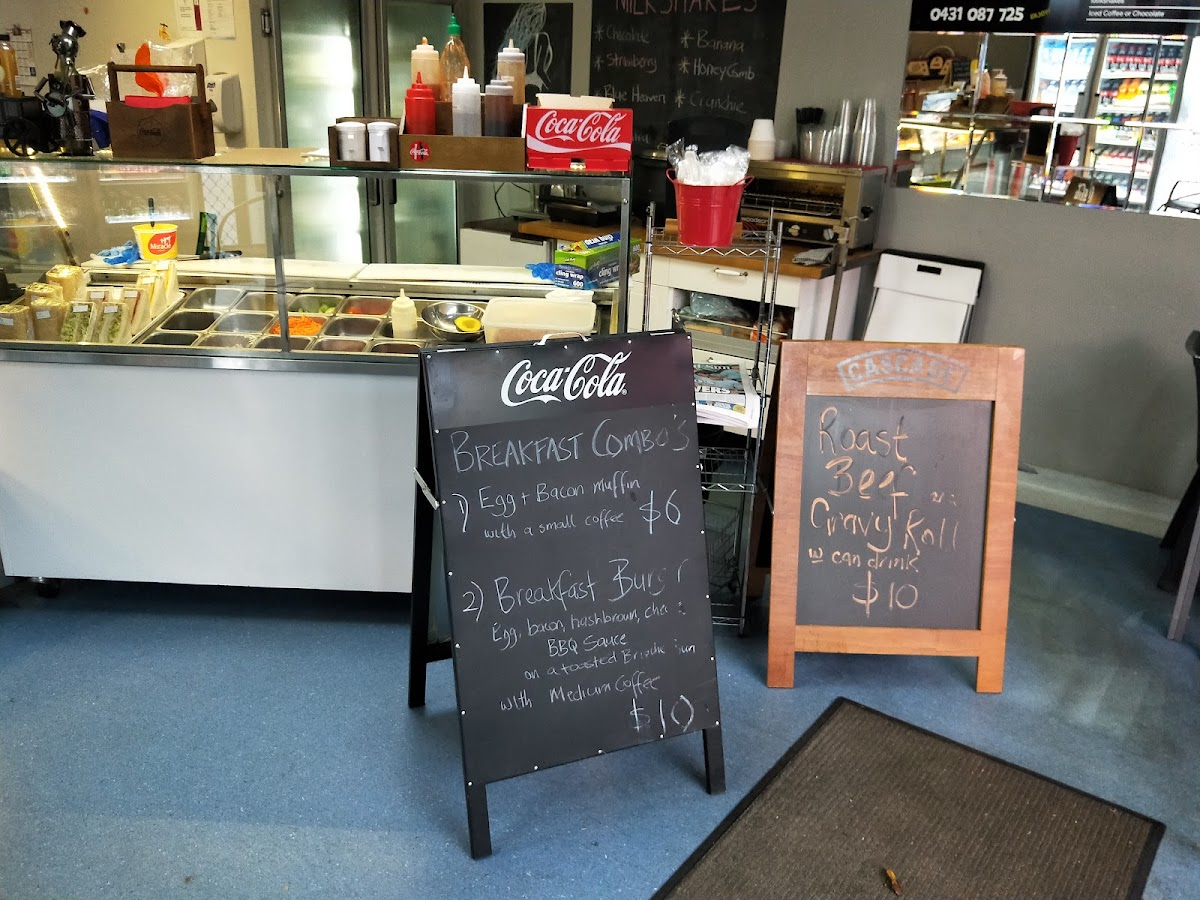 MILKSHAKES
* Chocolate
* Strawberry
Blue Heaven
* Banana
* HoneyComb
* Crunchie
0431 087 725
Milkshakes
Iced Coffee or Chocolate
Coca-Cola
cling wrap
600
Coca-Cola
BREAKFAST COMBO'S
1) Egg + Bacon muffin
with a small coffee $6
2) Breakfast Burger
Egg, bacon, hashbrown,
BBQ Sauce
on a toasted Brioche
with Medium Coffee
$10
CASCADE
Roast
Beef
Gravy Roll
w can drink
$10